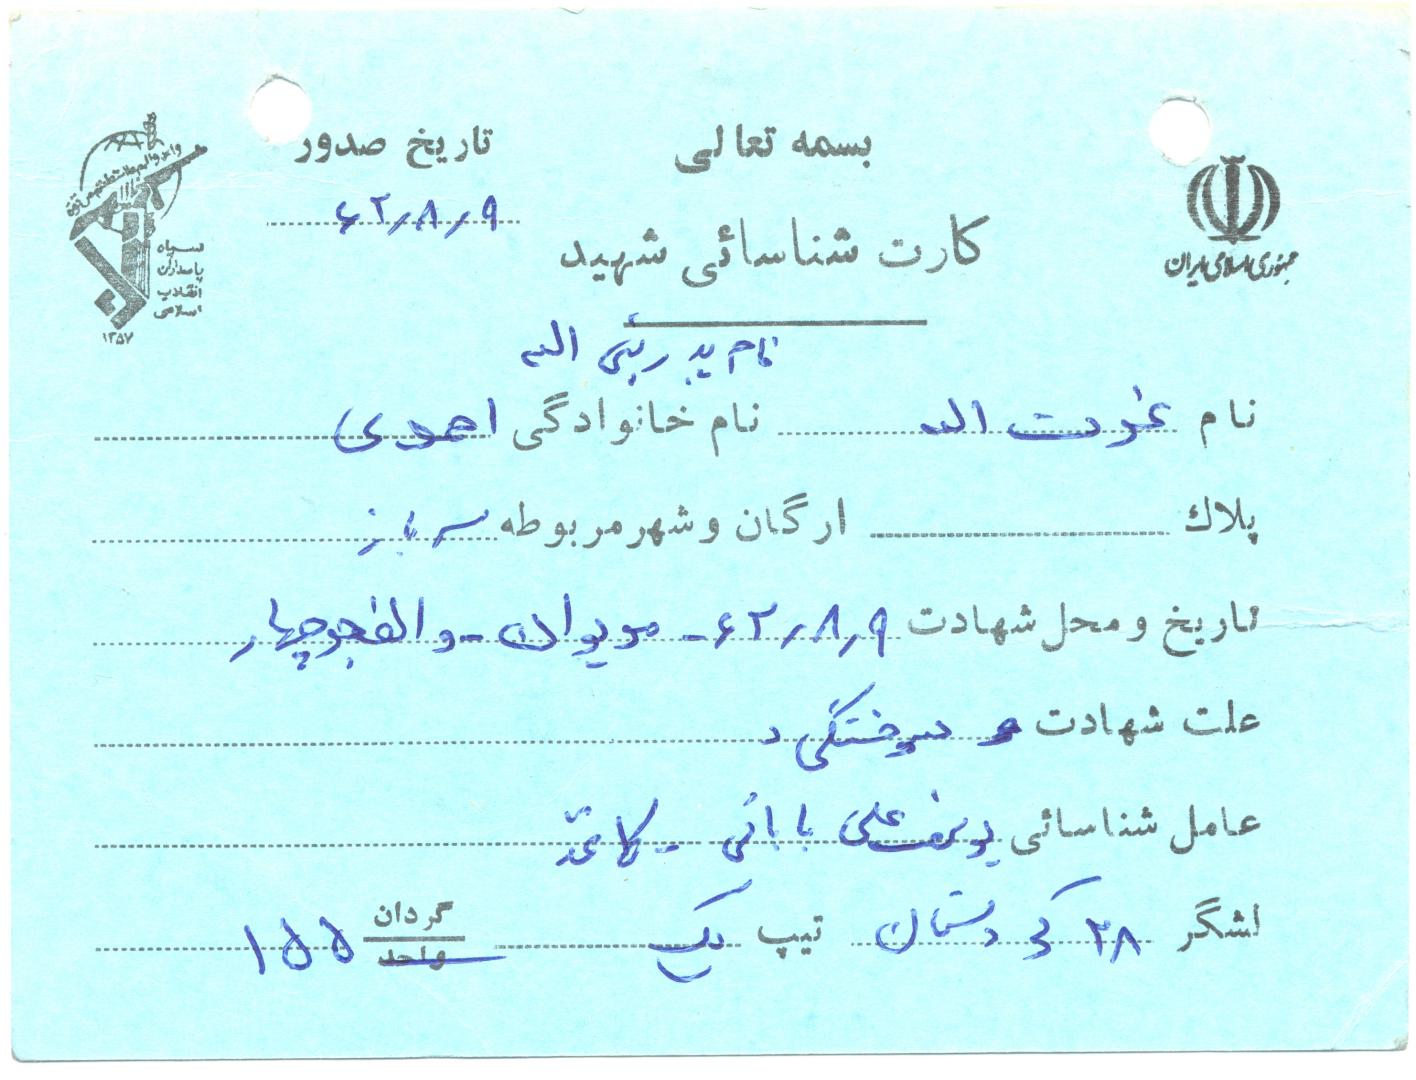 بسمه تعالی
تاریخ صدور
۶۲/۸/۹
کارت شناسائی شهید
جمهوری اسلامی ایران
سپاه
پاسداران
انقلاب
اسلامی
۱۳۵۷
نام پدر الله
نام عزت الله نام خانوادگی احمدی
پلاك ارگان و شهر مربوطه سرباز
تاریخ و محل شهادت ۶۲/۸/۹ - مریوان - والفجر چهار
علت شهادت سوختگی
عامل شناسائی یوسفعلی بابائی - کاغذ
لشگر ۲۸ کردستان تیپ یک گردان واحد ۱۵۵